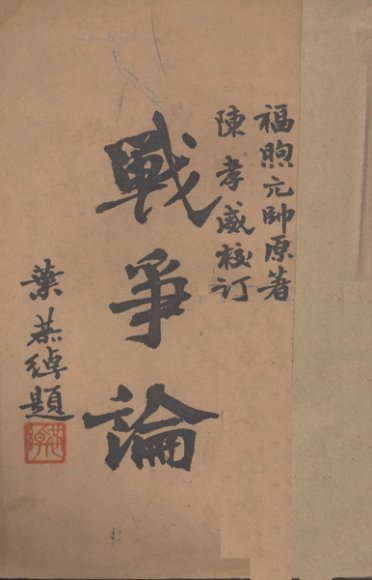 福煦元帥原著
陳孝威校訂
戰爭論
葉恭綽題